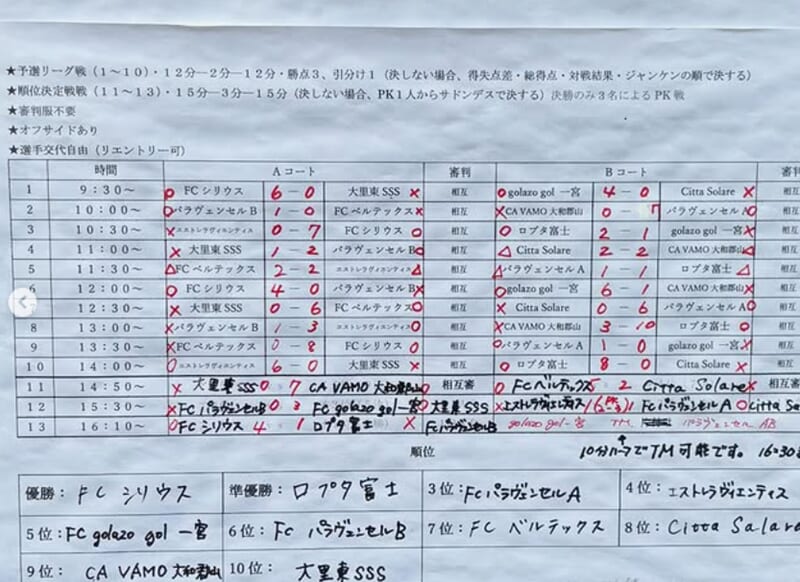 ★予選リーグ戦（1～10）・12分―2分―12分・勝点3、引分け1（決しない場合、得失点差・総得点・対戦結果・ジャンケンの順で決する）
★順位決定戦戦（11～13）・15分―3分―15分（決しない場合、PK1人からサドンデスで決する）決勝のみ3名によるPK戦
★審判服不要
★オフサイドあり
★選手交代自由（リエントリー可）
時間 Aコート 審判 Bコート 審判
1 9：30～ o FCシリウス 6－0 大里東SSS × 相互 o golazo gol 一宮 4－0 Citta Solare × 相互
2 10：00～ o パラヴェンセルB 1－0 FCベルテックス × 相互 × CA VAMO 大和郡山 0－7 パラヴェンセルA o 相互
3 10：30～ × エストレラヴィエンティス 0－7 FCシリウス o 相互 o ロプタ富士 2－1 golazo gol 一宮 × 相互
4 11：00～ × 大里東SSS 1－2 パラヴェンセルB o 相互 △ Citta Solare 2－2 CA VAMO 大和郡山 △ 相互
5 11：30～ △ FCベルテックス 2－2 エストレラヴィエンティス △ 相互 △ パラヴェンセルA 1－1 ロプタ富士 △ 相互
6 12：00～ o FCシリウス 4－0 パラヴェンセルB × 相互 o golazo gol 一宮 6－1 CA VAMO 大和郡山 × 相互
12：30～ × 大里東SSS 0－6 FCベルテックス o 相互 × Citta Solare 0－6 パラヴェンセルA o 相互
8 13：00～ × パラヴェンセルB 1－3 エストレラヴィエンティス o 相互 × CA VAMO 大和郡山 3－10 ロプタ富士 o 相互
9 13：30～ × FCベルテックス 0－8 FCシリウス o 相互 o パラヴェンセルA 1－0 golazo gol 一宮 × 相互
10 14：00～ o エストレラヴィエンティス 6－0 大里東SSS × 相互 o ロプタ富士 8－0 Citta Solare × 相互
11 14：50～ × 大里東SSS 0 7 CA VAMO 大和郡山 o 相互審 o FCベルテックス 5 2 Citta Solare × 相互審
12 15：30～ × FCパラヴェンセルB 0 3 FC golazo gol 一宮 o 大里東SSS × エストレラヴィエンティス 1 1 FCパラヴェンセルA o Citta So
13 16：10～ o FCシリウス 4 1 ロプタ富士 × FCパラヴェンセルB golazo gol 一宮 TM パラヴェンセル AB
順位 10分ハーフでTM可能です。16:30
優勝：FC シリウス 準優勝：ロプタ富士 3位：FCパラヴェンセルA 4位：エストレラヴィエンティス
5位：FC golazo gol 一宮 6位：FC パラヴェンセルB 7位：FC ベルテックス 8位：Citta Salare
9位：CA VAMO 大和郡山 10位：大里東SSS